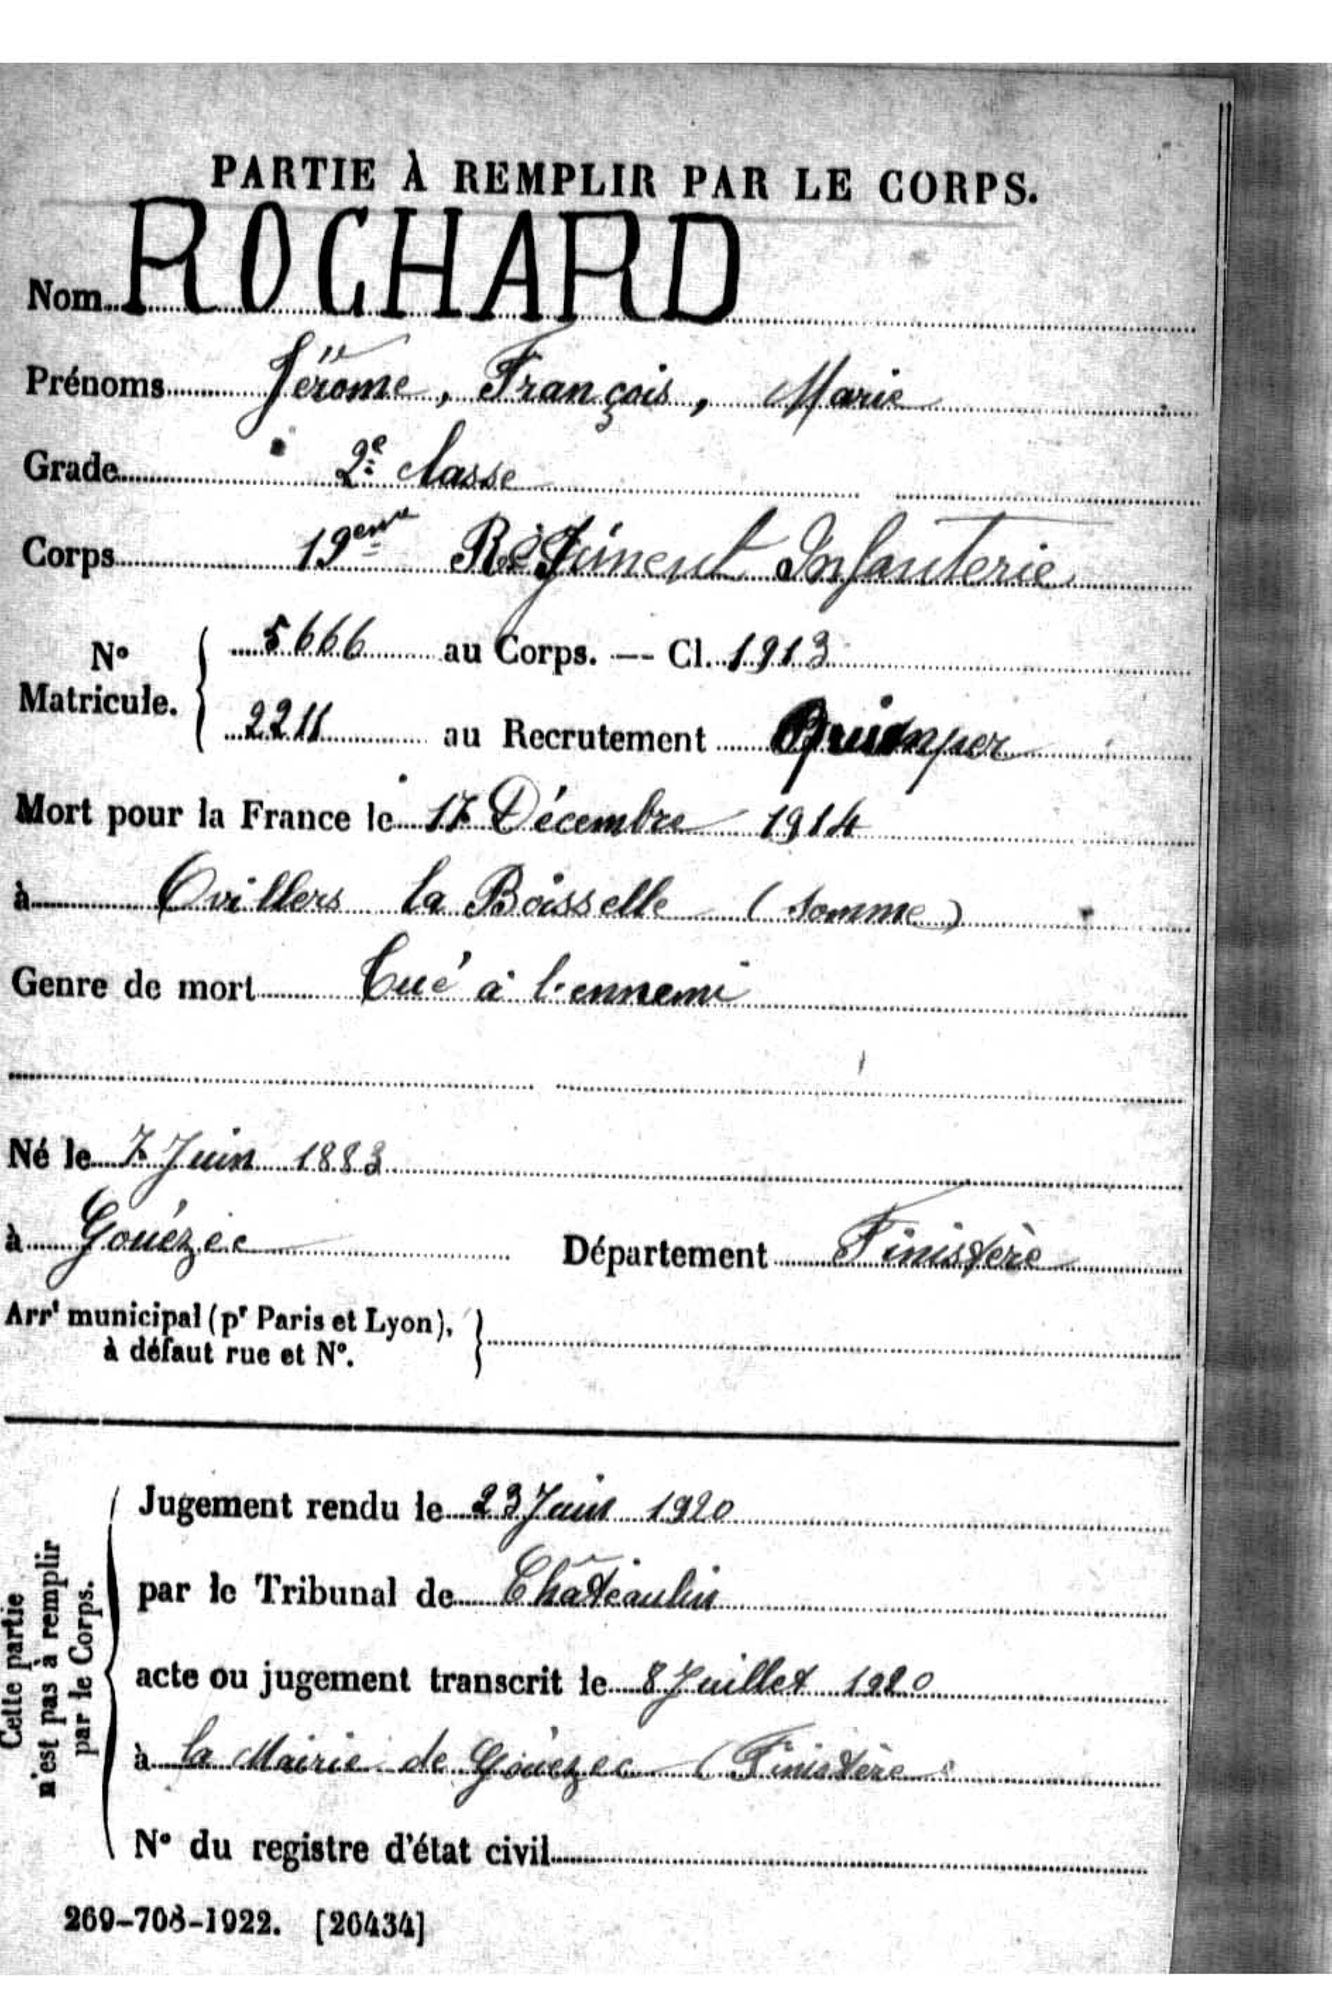 PARTIE À REMPLIR PAR LE CORPS.
Nom ROCHARD
Prénoms Jérome, François, Marie
Grade 2e classe
Corps 19eme Régiment Infanterie
No Matricule. 5666 au Corps. — Cl. 1913
2211 au Recrutement Quimper
Mort pour la France le 17 Décembre 1914
à Ovillers la Boisselle (Somme)
Genre de mort Tué à l'ennemi
Né le 7 Juin 1883
à Gouézec Département Finistère
Arrt municipal (pr Paris et Lyon),
à défaut rue et No.
Cette partie
n'est pas à remplir
par le Corps.
Jugement rendu le 23 Juin 1920
par le Tribunal de Châteaulin
acte ou jugement transcrit le 8 Juillet 1920
à la Mairie de Gouezec (Finistère
No du registre d'état civil
269-708-1922. [26434]